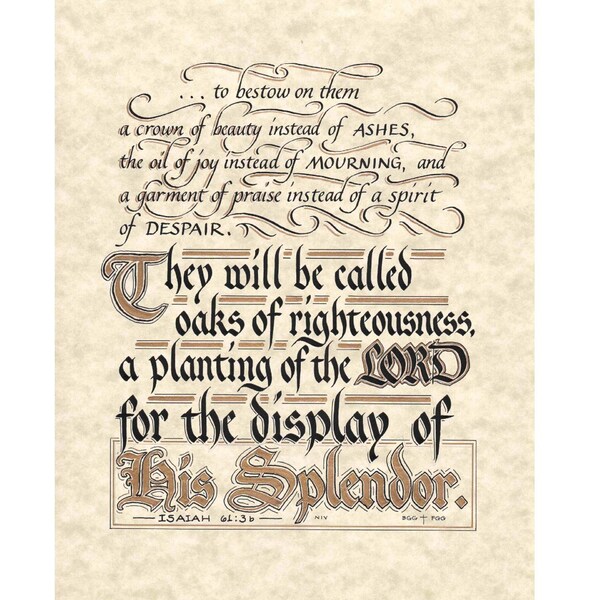 ... to bestow on them
a crown of beauty instead of ASHES,
the oil of joy instead of MOURNING, and
a garment of praise instead of a spirit
of DESPAIR.
They will be called
oaks of righteousness,
a planting of the LORD
for the display of
His Splendor.
ISAIAH 61:3b NIV BGG † PGG